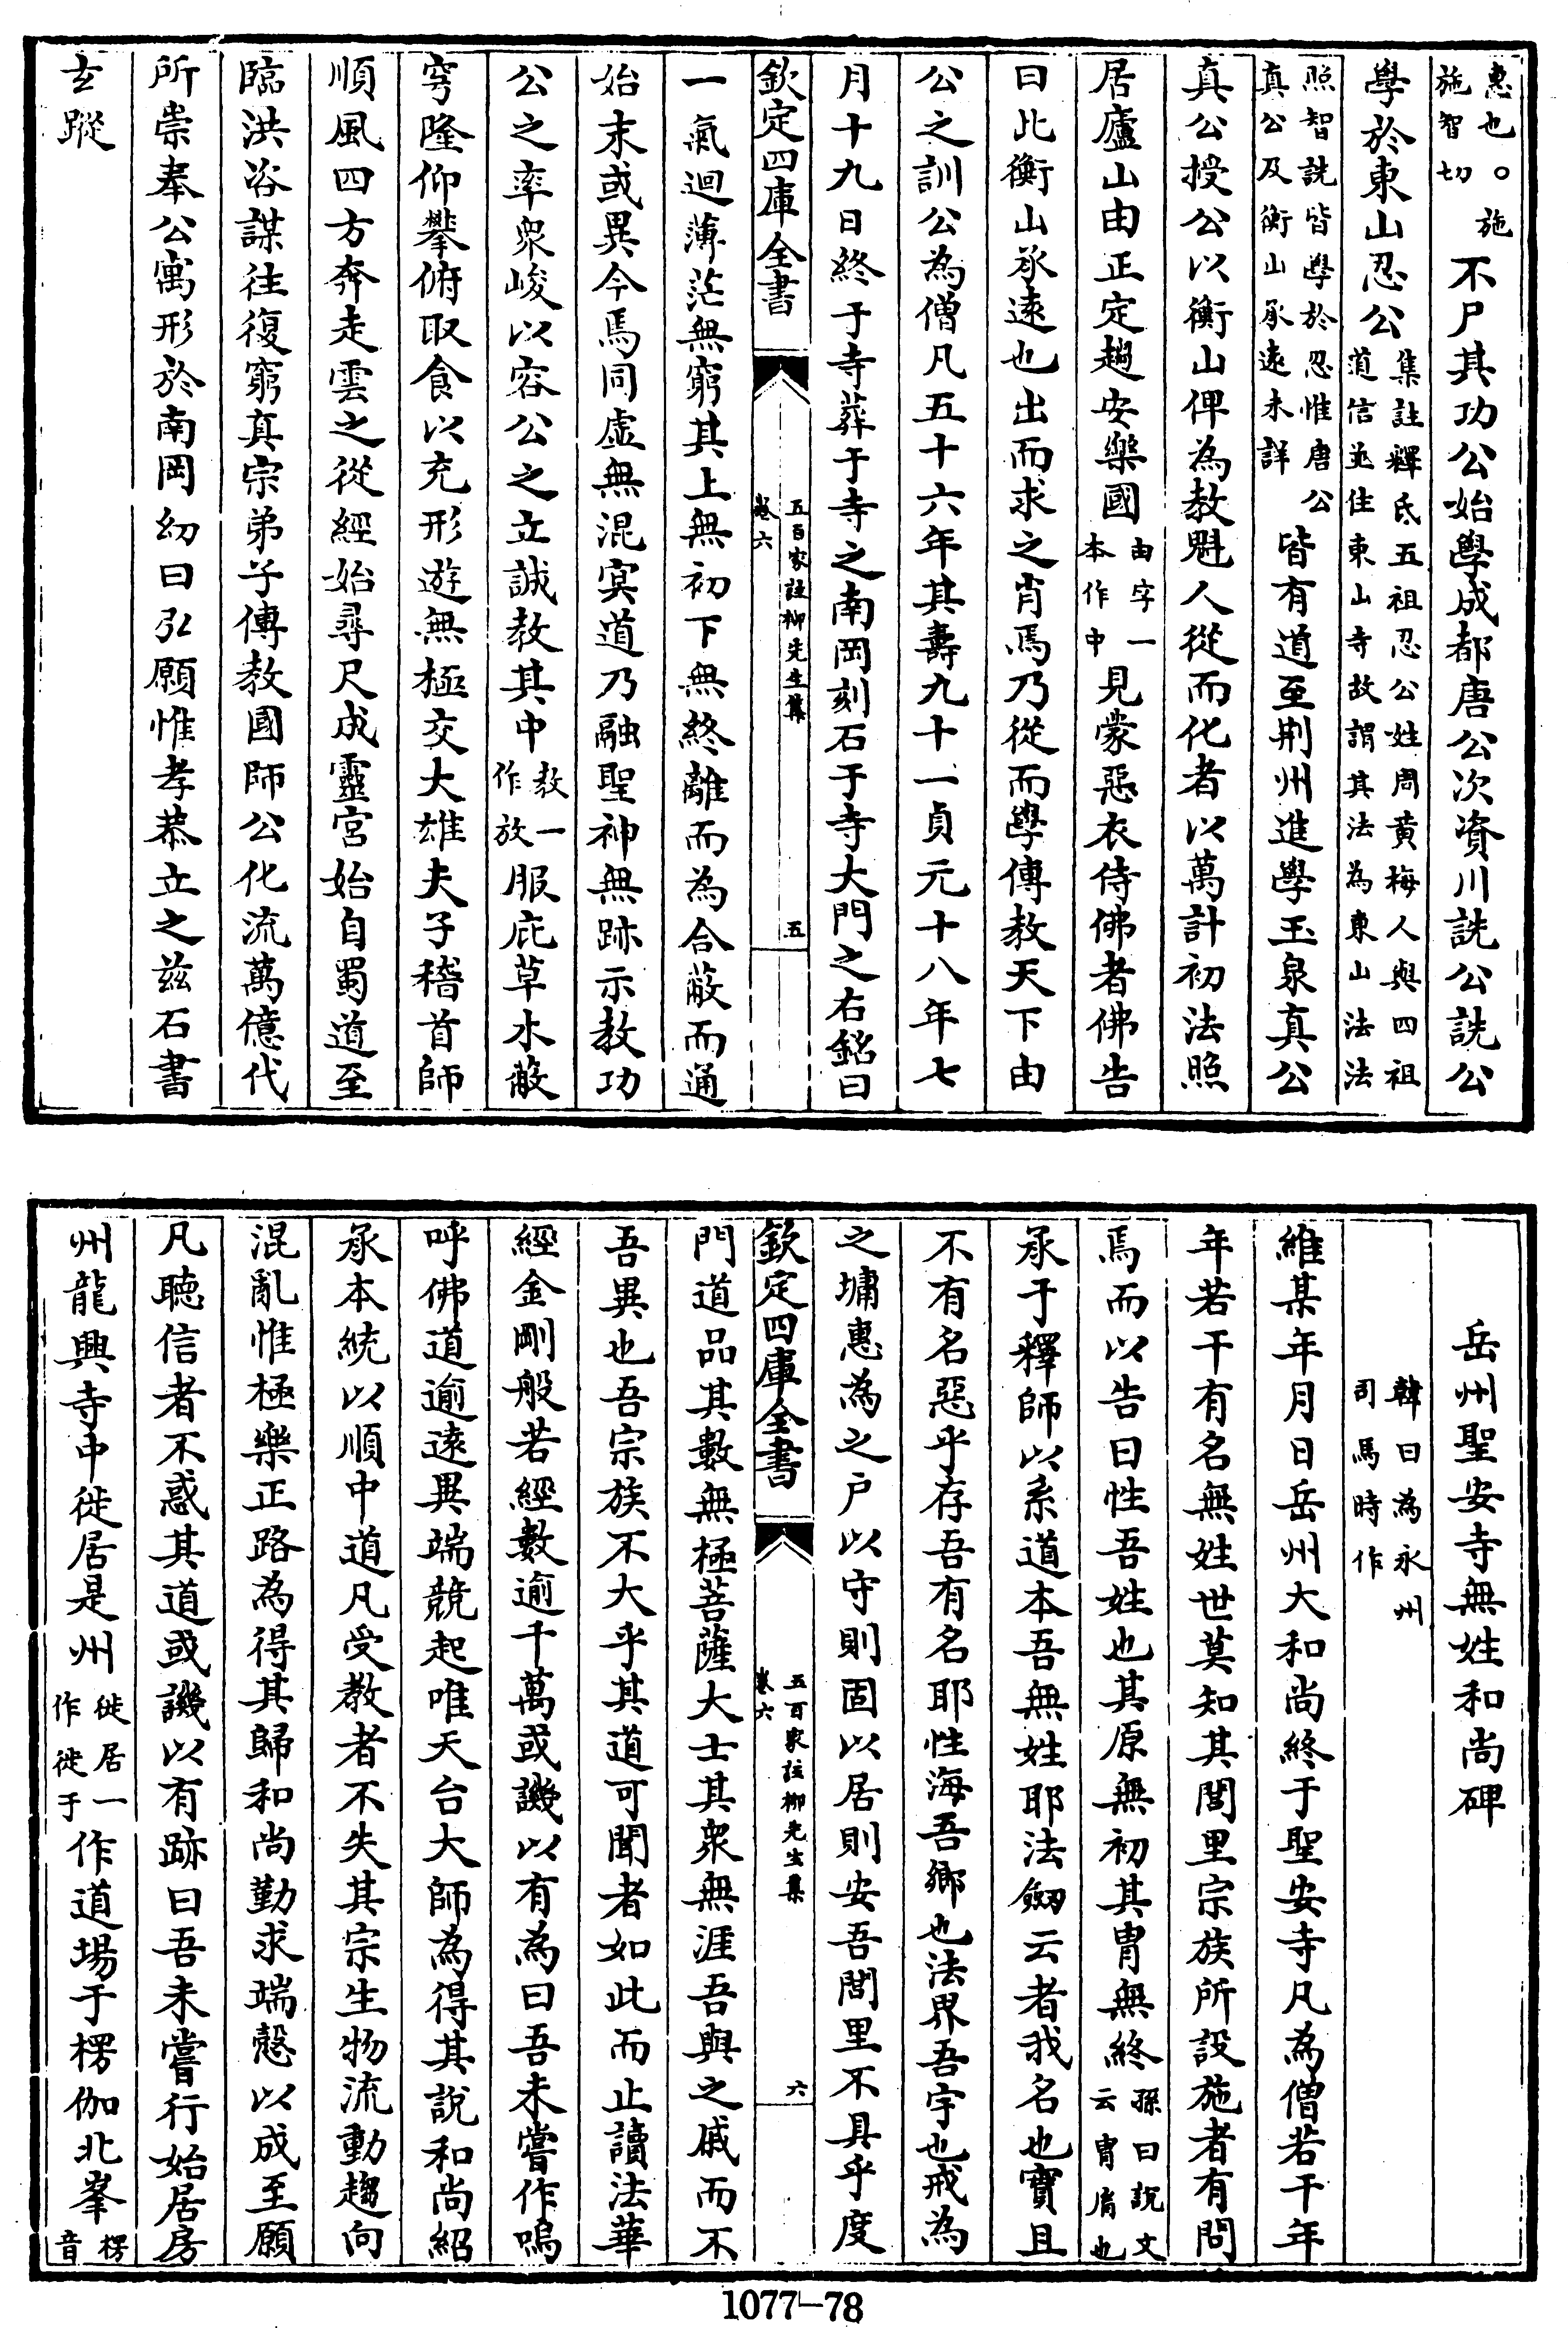 惠也○施施智切不尸其功公始學成都唐公次資川詵公詵公
學於東山忍公集註釋氏五祖忍公姓周黄梅人與四祖道信並住東山寺故謂其法為東山法法
照智詵皆學於忍惟唐公真公及衡山承遠未詳皆有道至荆州進學玉泉真公
真公授公以衡山俾為教魁人從而化者以萬計初法照
居廬山由正定趨安樂國由字一本作中見蒙惡衣侍佛者佛告
曰此衡山承遠也出而求之肖焉乃從而學傳教天下由
公之訓公為僧凡五十六年其壽九十一貞元十八年七
月十九日終于寺葬于寺之南岡刻石于寺大門之右銘曰
欽定四庫全書 五百家註柳先生集卷六 五
一氣迴薄茫無窮其上無初下無終離而為合蔽而通
始末或異今焉同虛無混冥道乃融聖神無跡示教功
公之率衆峻以容公之立誠教其中教一作放服庇草木蔽
穹隆仰攀俯取食以充形遊無極交大雄夫子稽首師
順風四方奔走雲之從經始尋尺成靈宮始自蜀道至
臨洪咨謀往復窮真宗弟子傳教國師公化流萬億代
所崇奉公寓形於南岡幼曰弘願惟孝恭立之兹石書
玄蹤
岳州聖安寺無姓和尚碑
韓曰為永州司馬時作
維某年月日岳州大和尚終于聖安寺凡為僧若干年
年若干有名無姓世莫知其閭里宗族所設施者有問
焉而以告曰性吾姓也其原無初其胄無終孫曰說文云胄胤也
承于釋師以系道本吾無姓耶法劒云者我名也實且
不有名惡乎存吾有名耶性海吾鄉也法界吾宇也戒為
之墉惠為之戶以守則固以居則安吾閭里不具乎度
欽定四庫全書 五百家註柳先生集卷六 六
門道品其數無極菩薩大士其衆無涯吾與之戚而不
吾異也吾宗族不大乎其道可聞者如此而止讀法華
經金剛般若經數逾千萬或譏以有為曰吾未嘗作嗚
呼佛道逾遠異端競起唯天台大師為得其說和尚紹
承本統以順中道凡受教者不失其宗生物流動趨向
混亂惟極樂正路為得其歸和尚勤求端慤以成至願
凡聽信者不惑其道或譏以有跡曰吾未嘗行始居房
州龍興寺中徙居是州徙居一作徙于作道場于楞伽北峯楞音
1077—78